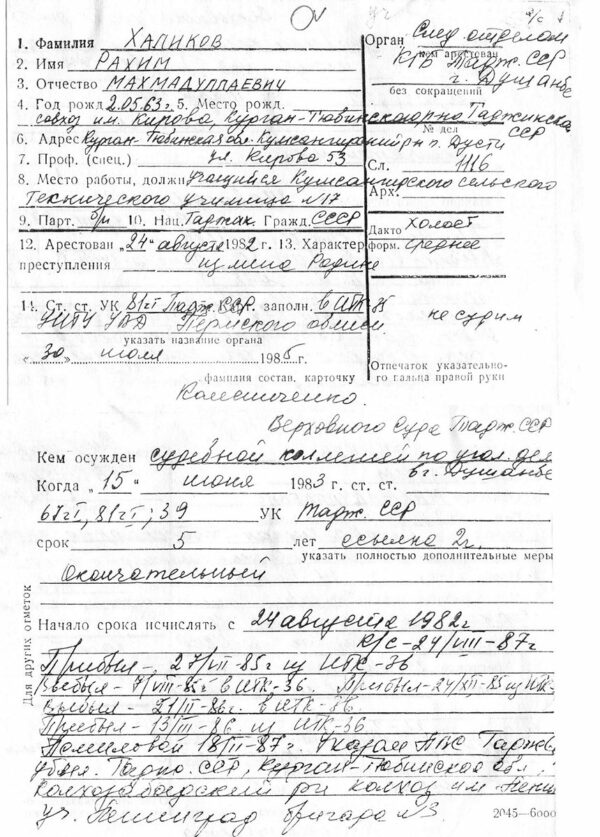 уч
1. Фамилия ХАЛИКОВ
2. Имя РАХИМ
3. Отчество МАХМАДУЛЛАЕВИЧ
4. Год рожд 2.05.63 г. 5. Место рожд.
совхоз им. Кирова, Курган-Тюбинской Таджикской ССР
6. Адрес Курган-Тюбинская обл. Кумсангирский рн п. Дусти
7. Проф. (спец.) ул. Кирова 53
8. Место работы, должн учащийся Кумсангирского сельского
Технического училища №17
9. Парт. б/п 10. Нац. Таджик. Гражд. СССР
12. Арестован „24“ августа 1982 г. 13. Характер
преступления измена Родине
14. Ст. ст. УК 81 ч I Тадж. ССР. заполн. в ИТК 35
УИТУ УВД Пермского
указать название органа
„30„ июля 1985 г.
фамилия состав. карточку
Орган След. отделом
кем арестован
КГБ Тадж. ССР
г. Душанбе
без сокращений
№ дел
Сл. 1116
Арх.
Дакто холост
форм. среднее
не судим
Отпечаток указательно-
го пальца правой руки
Верховного Суда Тадж. ССР
Кем осужден судебной коллегией по угол. дел
в г. Душанбе
Когда „15“ июня 1983 г. ст. ст.
67 ч I, 81 ч I; 39 УК Тадж. ССР
срок 5 лет ссылка 2 г.
указать полностью дополнительные меры
Окончательный
Для других отметок
Начало срока исчислять с 24 августа 1982 г
К/С - 24/VIII - 87 г
Прибыл - 27/VII - 85 г из ИТК-36
в ИТК-36. Прибыл - 24/XII - 85 из ИТК-
Выбыл - 21/II - 86 г. в ИТК-36.
Прибыл - 13/III - 86 из ИТК-36
Помилован 18/II - 87 г. Указом ПВС Тадж
убыл. Тадж. ССР, Курган-Тюбинская обл,
Колхозабадский рн колхоз им. Ленина
уч. Ленинград бригада №3.
2045—6000